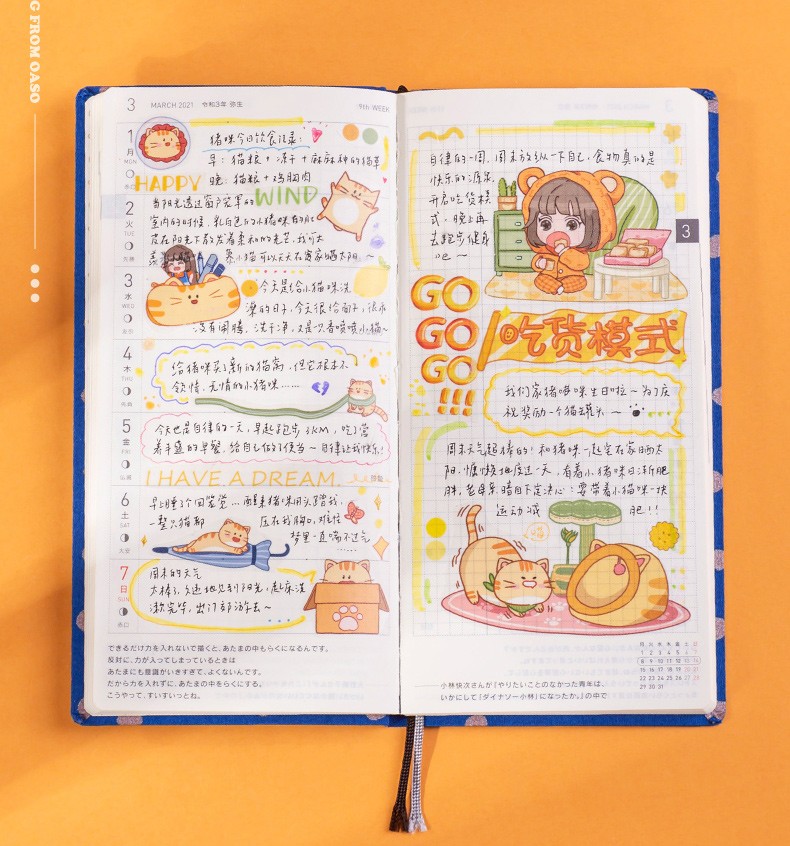 G FROM OASO
3 MARCH 2021 令和3年 弥生 9th WEEK
1
月
MON
猪咪今日饮食记录:
早: 猫粮 + 冻干 + 麻麻种的猫草
晚: 猫粮 + 鸡胸肉
HAPPY
WIND
2
火
TUE
当阳光透过窗户
室内的时候, 乳白色的小猪咪
在阳光下散发着柔和的光芒, 我可太
小猫可以天天在客家晒太阳~
3
水
WED
今天是给小猫咪洗
澡的日子, 今天很给面子, 很乖
没有闹腾, 洗干净, 又是只香喷喷小猫~
4
木
THU
给猪咪买了新的猫窝, 但它根本不
领情, 无情的小猪咪……
5
金
FRI
今天也是自律的一天, 早起跑步3KM, 吃了营
养丰盛的早餐, 给自己做了便当~自律让我快乐!
I HAVE A DREAM.
6
土
SAT
早上睡了个回笼觉… 醒来猪咪用头蹭我
一整只猫都 压在我胸口, 难怪
梦里一直喘不过气
……
7
日
SUN
周末的天气
太棒了, 久违地见到阳光, 起床洗
漱完毕, 出门部游去~
できるだけ力を入れないで描くと、あたまの中もらくになるんです。
反対に、力が入ってしまっているときは
あたまにも意識がいきすぎて、よくないんです。
だから力を入れずに、あたまの中をらくにする。
こうやって、すいすいっとね。
自律的一周, 周末放纵一下自己, 食物真的是
快乐的源泉
开启吃货模
式, 晚上再
去跑步健身
吧~
3
GO
GO
GO
!!!
吃货模式
我们家猪咪生日啦~为了庆
祝奖励一个猫罐头~
周末天气超棒的! 和猪咪一起宅在家晒太
阳, 慵懒地度过一天, 看着小猪咪日渐肥
胖, 老母亲暗自下定决心: 要带着小猫咪一块
运动减 肥!!
小林快次さんが『やりたいことのなかった青年は、
いかにして「ダイナソー小林」になったか。』の中で
月 火 水 木 金 土 日
1 2 3 4 5 6 7
8 9 10 11 12 13 14
15 16 17 18 19 20 21
22 23 24 25 26 27 28
29 30 31